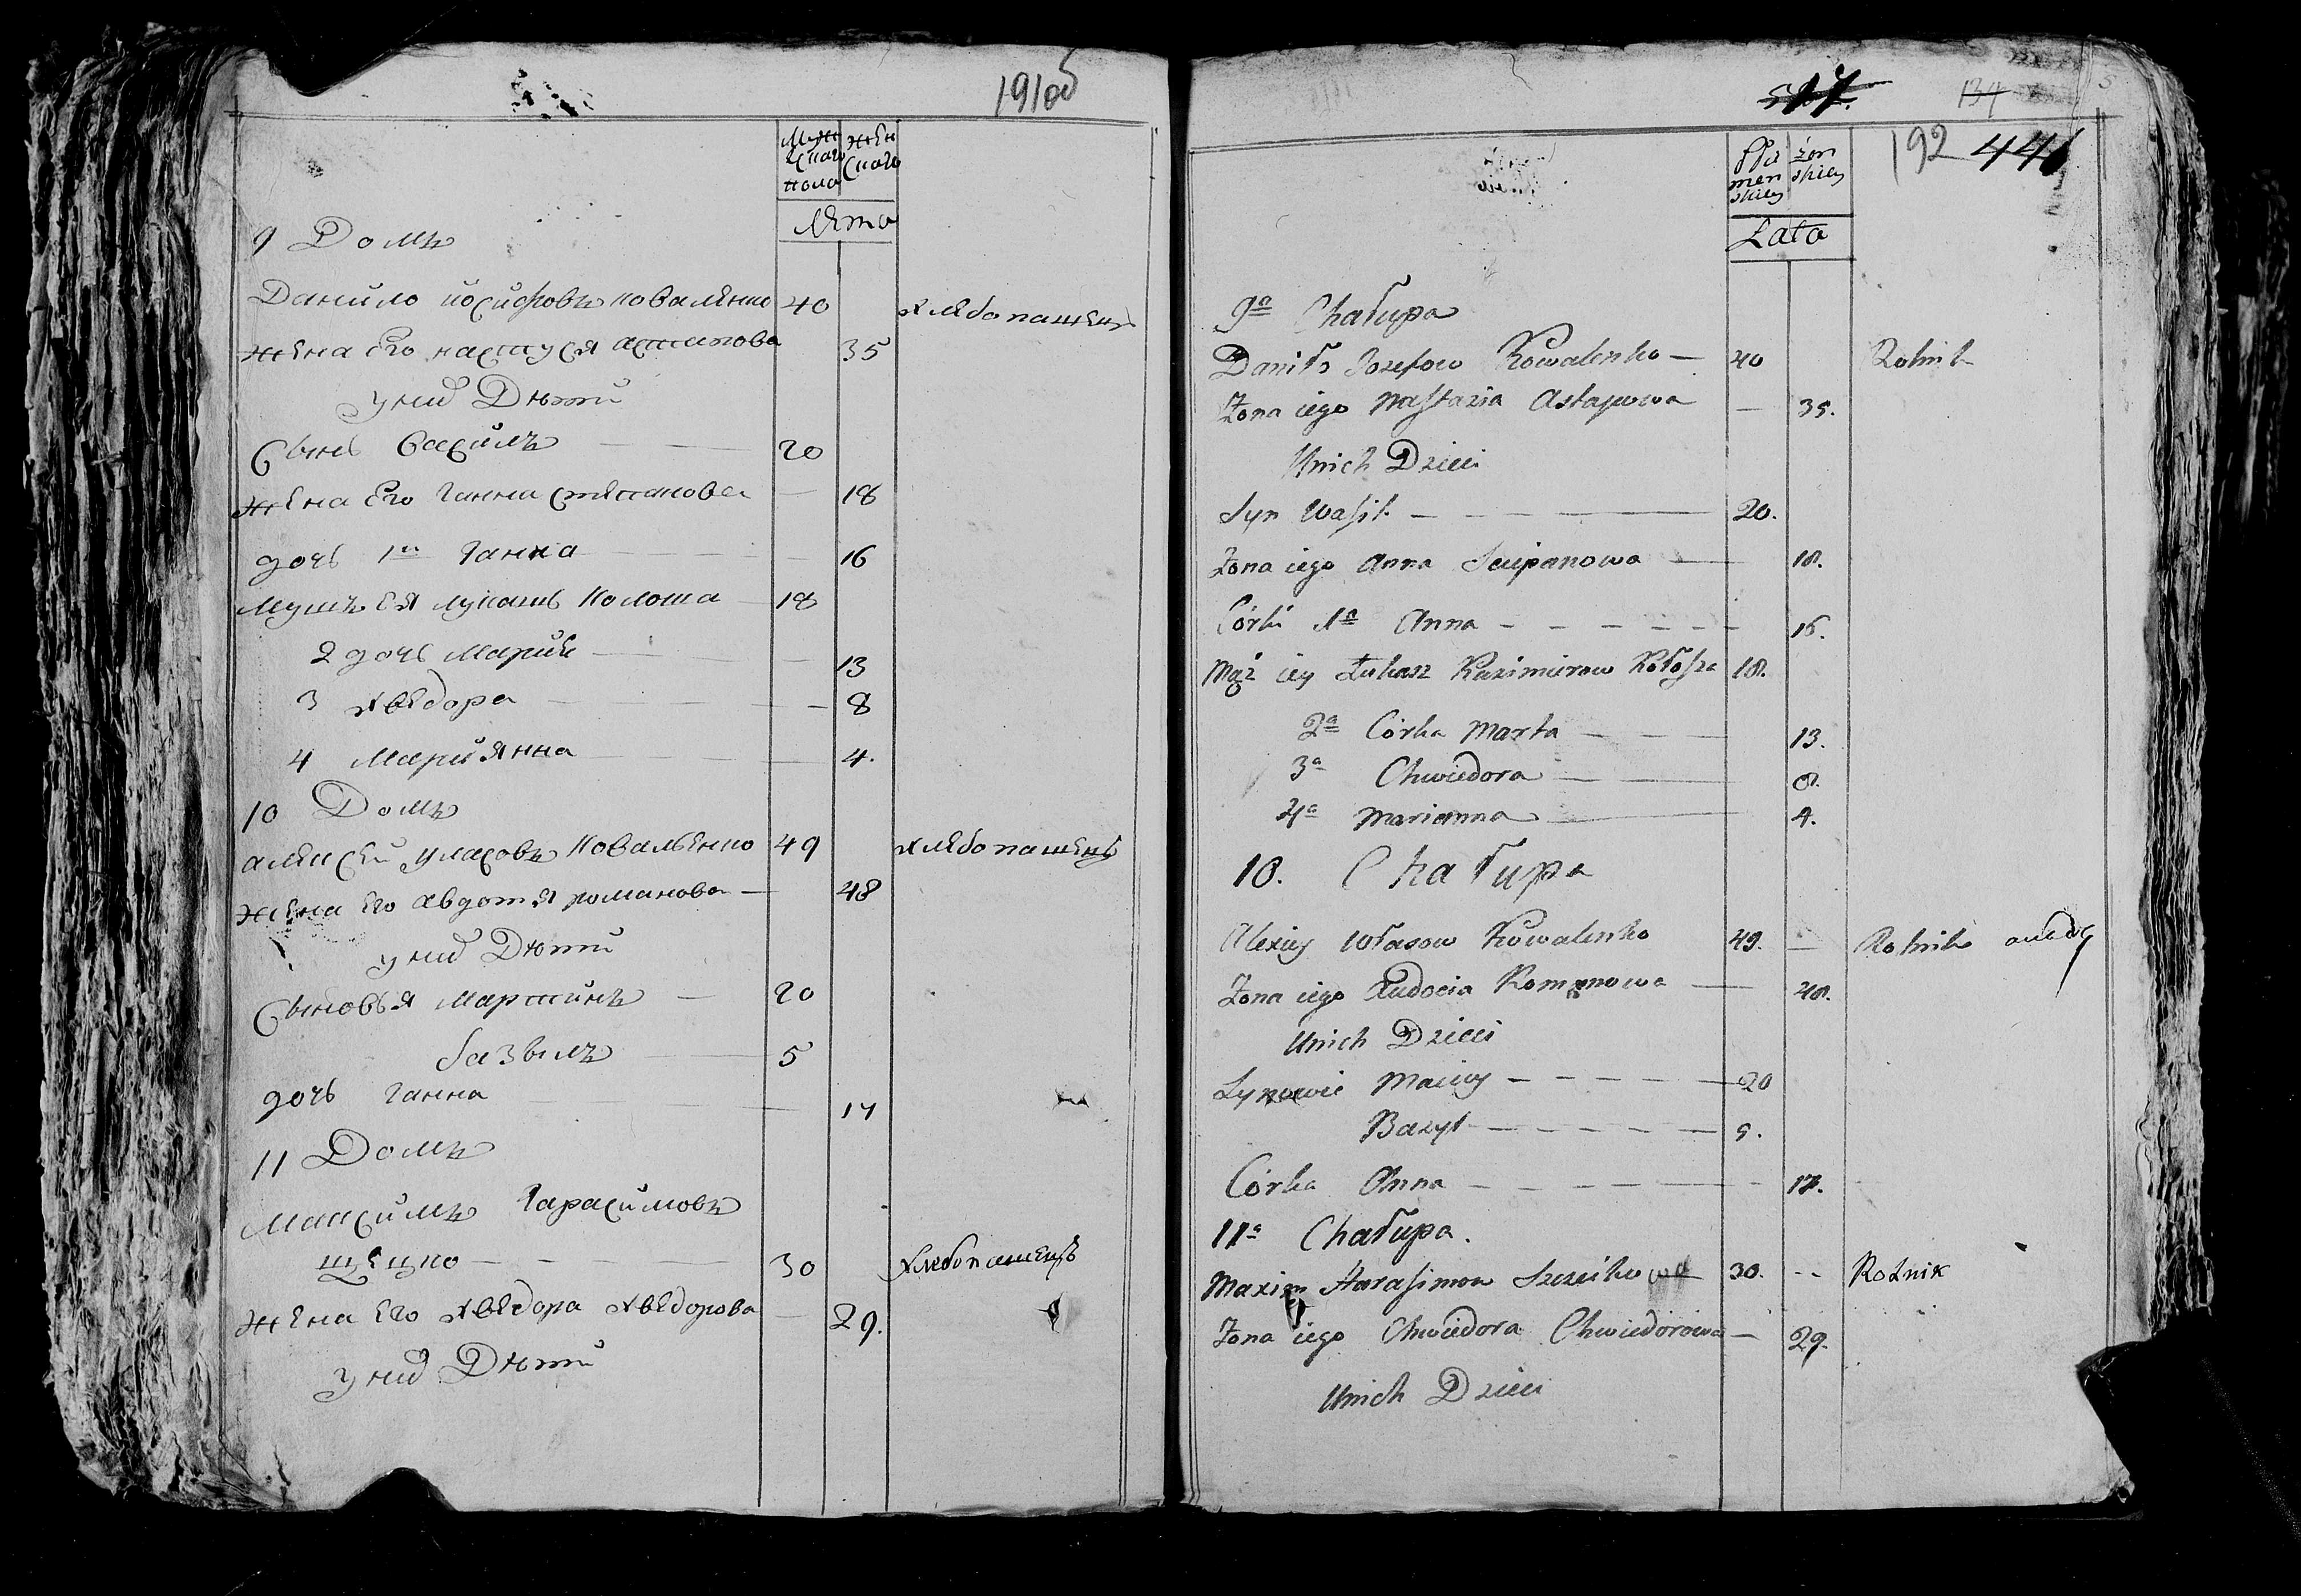 191об
Муж
скаго
пола
жен
скаго
Лета
9 Домъ
Данило йосифовъ коваленко 40 хлебопашецъ
жена Его настуся астапова 35
у ных Дети
Сынъ Василъ — 20
жена Его Ганна степанова — 18
дочь 1я Ганна — 16
Мужъ Ея лукашъ Колоша 18
2 дочь Марта — 13
3 хведора — 8
4 Мариянна — 4.
10 Домъ
алексей уласовъ Ковальенко 49 хлебопашецъ
жена Его Авдотя романова — 48
у них Дети
Сыновья Мартинъ — 20
базылъ 5
дочь Ганна — 17
11 Домъ
Максимъ Гарасимовъ
щецко — 30 хлебопашецъ
жена Его хведора хведорова — 29.
у них Дети
134
192 446
Płci
men
skiey
żen
skiey
Lata
9a Chałupa
Daniło Jozefow Kowalenko — 40 Rolnik
Żona iego Nastazia Astapowa — 35.
Unich Dzieci
Syn Wasil — 20.
Żona iego Anna Sciepanowa — 18.
Córki 1a Anna — 16.
Mąż iey Łukasz Kazimierow Kołosza 18.
2a Córka Marta — 13.
3a Chwiedora — 8.
4a Marianna — 4.
10. Chałupa
Alexiey Własow Kowalenko 49. — Rolnik
Żona iego Eudocia Romanowa — 48.
Unich Dzieci
Synowie Maciey — 20
Bazyl — 5.
Córka Anna — 17.
11a Chałupa.
Maxim Harasimow Szczeiko 30. -- Rolnik
Żona iego Chwiedora Chwiedorowa — 29.
Unich Dzieci